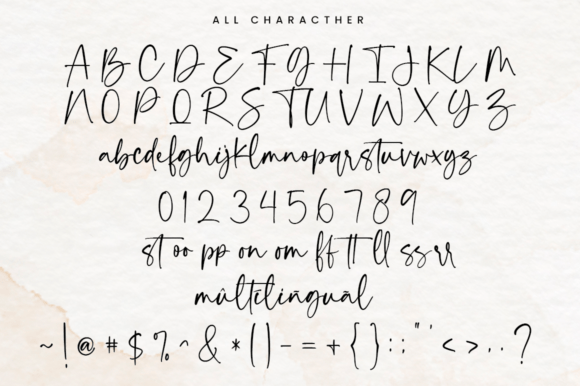 ALL CHARACTHER
A B C D E F G H I J K L M
N O P Q R S T U V W X Y Z
abcdefghijklmnopqrstuvwxyz
0 1 2 3 4 5 6 7 8 9
st oo pp on om ff tt ll ss rr
mûltīlinguāl
~ ! @ # $ % ^ & * ( ) - = + { } : ; " ' < > . . ?